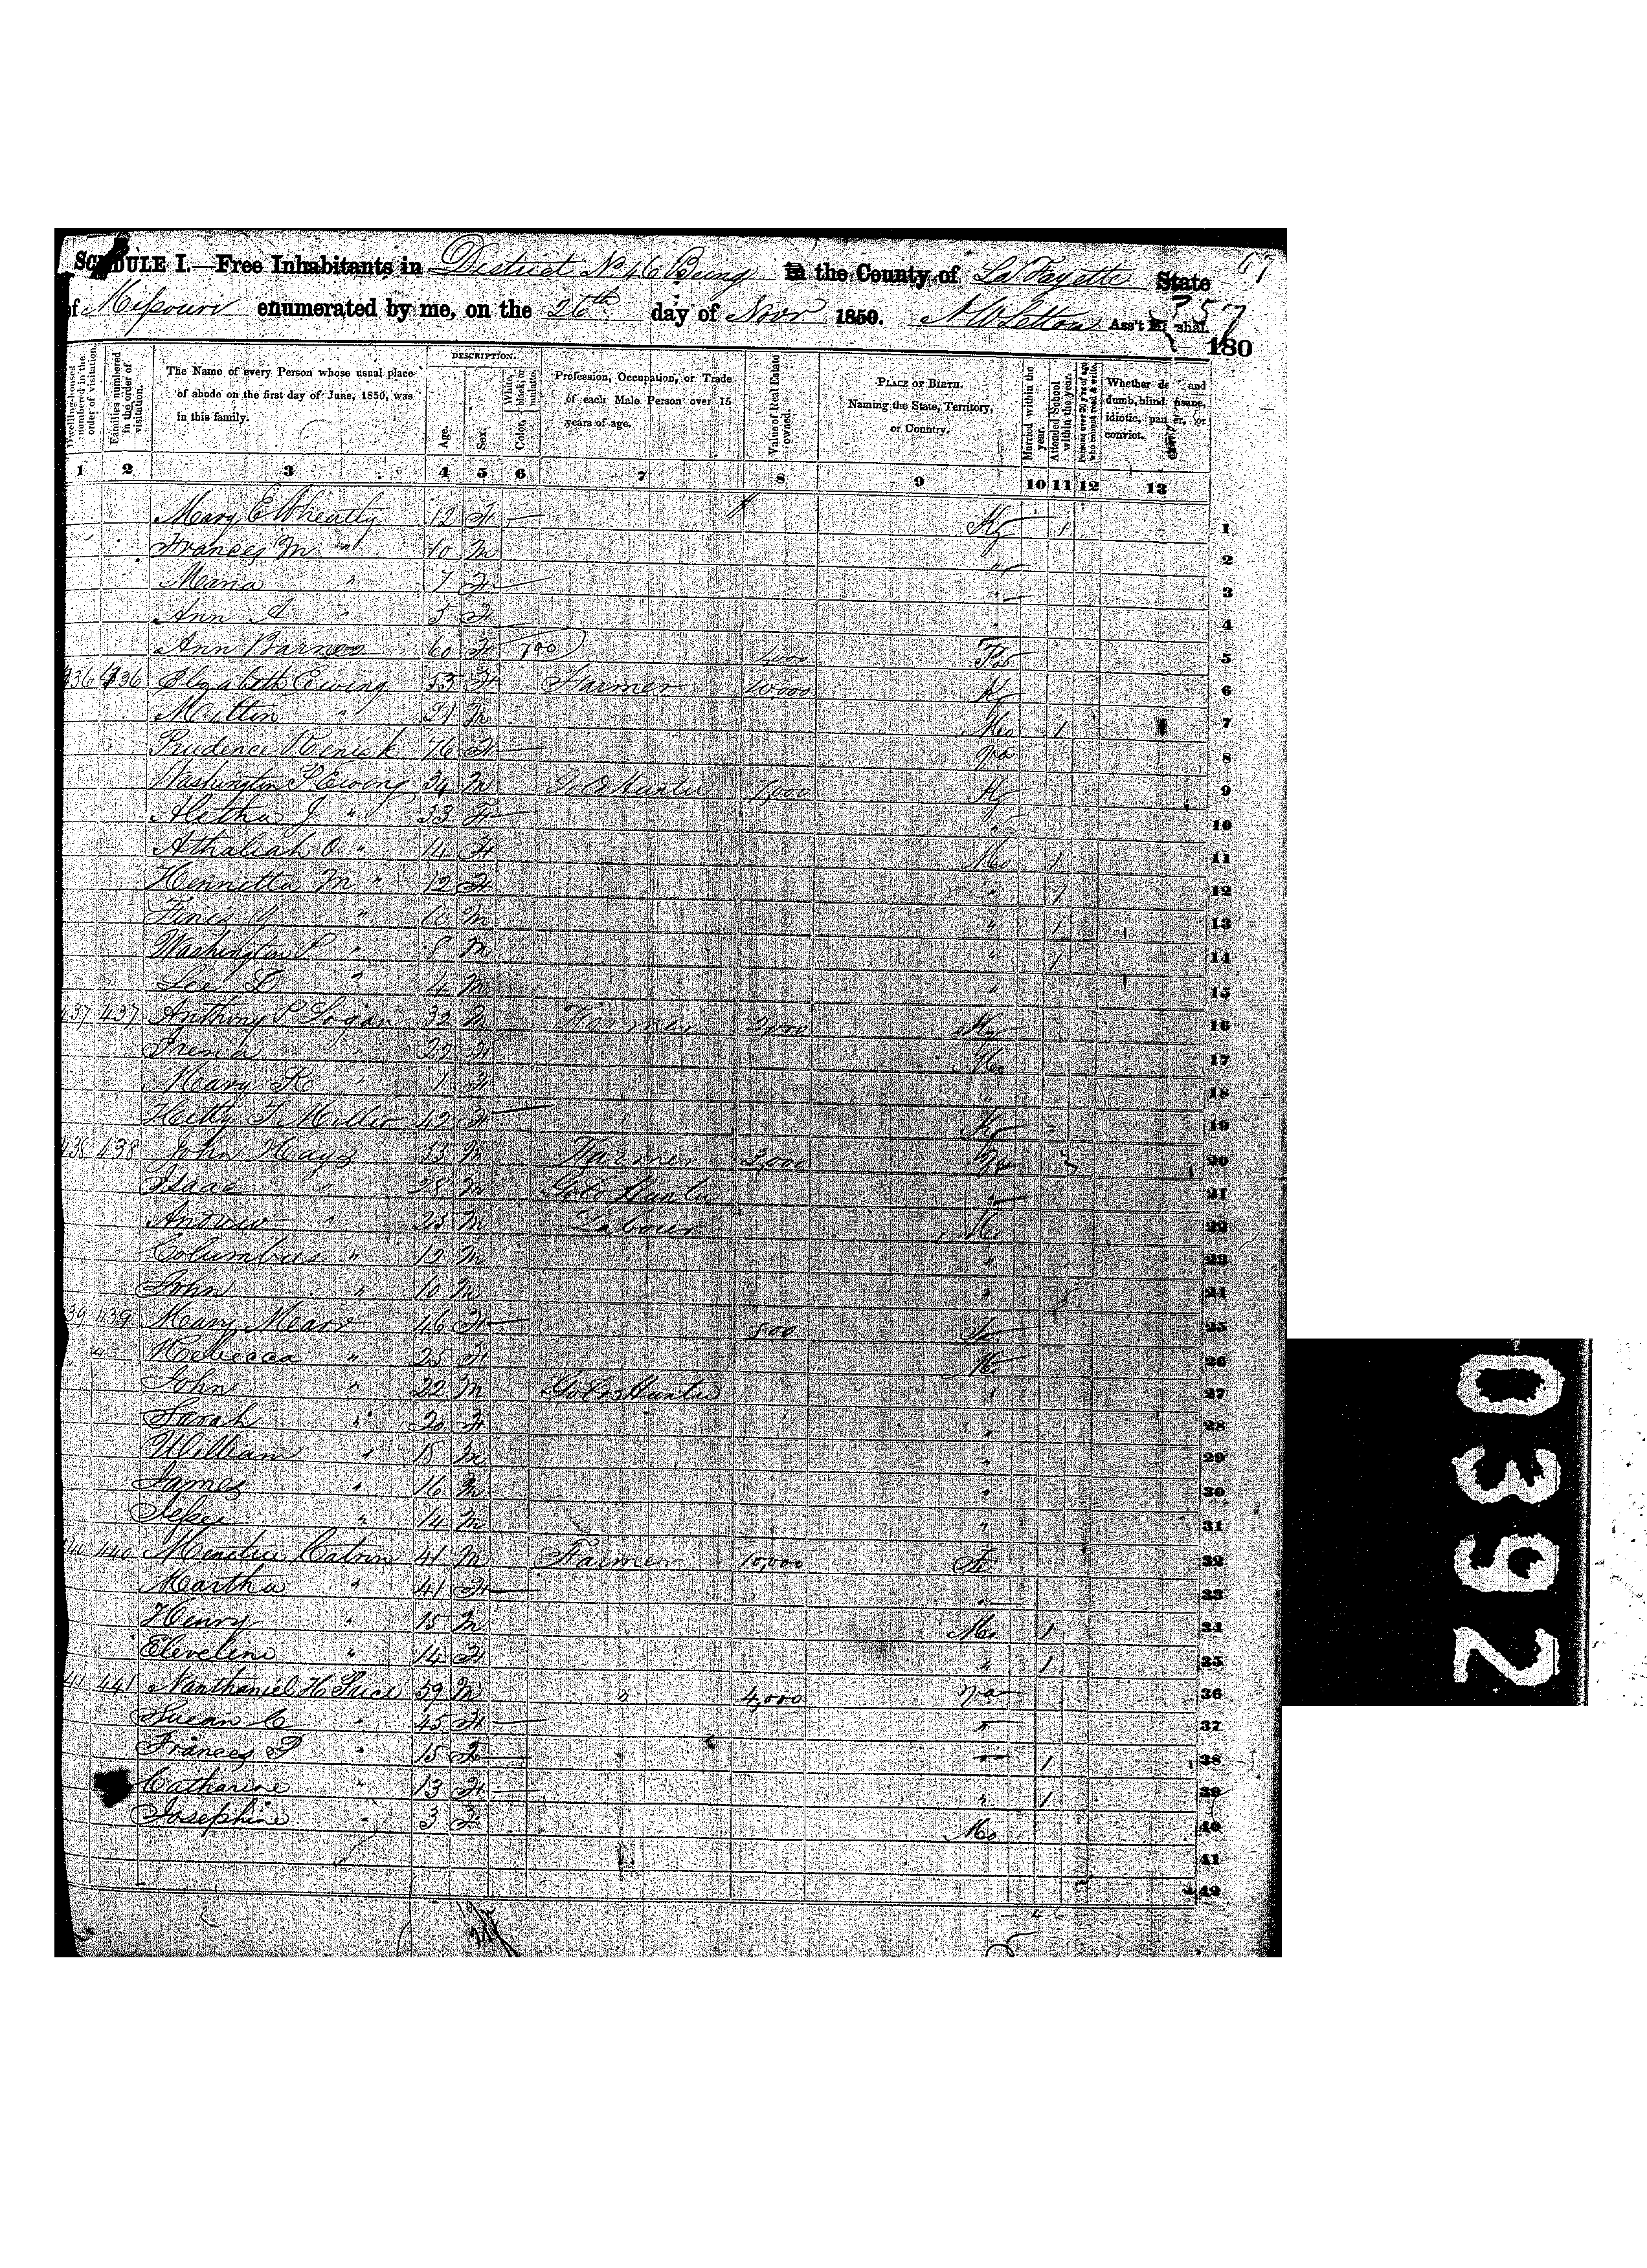 67
SCHEDULE I.—Free Inhabitants in District No 46 Being in the County of La Fayette State
of Missouri enumerated by me, on the 26th day of Novr 1850. Ass't Marshal.
357
180
Dwelling-houses numbered in the order of visitation.
Families numbered in the order of visitation.
The Name of every Person whose usual place of abode on the first day of June, 1850, was in this family.
DESCRIPTION.
Age.
Sex.
Color, White, black, or mulatto.
Profession, Occupation, or Trade of each Male Person over 15 years of age.
Value of Real Estate owned.
PLACE OF BIRTH. Naming the State, Territory, or Country.
Married within the year.
Attended School within the year.
Persons over 20 y'rs of age who cannot read & write.
Whether deaf and dumb, blind, insane, idiotic, pauper, or convict.
1 2 3 4 5 6 7 8 9 10 11 12 13
Mary E Wheatly 12 F Ky 1 1
Frances M " 10 M " 2
Maria " 7 F " 3
Ann A " 5 F " 4
Ann Barnes 60 F 5
436 436 Elizabeth Ewing 53 F Farmer 10,000 Ky 6
Milton " 21 M Mo 1 7
Prudence Renick 76 F Va 8
Washington P Ewing 34 M Gold Hunter Ky 9
Aletha J " 33 F " 10
Athaliah O " 14 F Mo 1 11
Henrietta M " 12 F " 1 12
Finis " 10 M " 1 13
Washington P " 8 M " 1 14
Lee D " 4 M " 15
437 437 Anthony P Logan 32 M Farmer 2,000 Ky 16
" 22 F Mo 17
Mary " 1 F " 18
Hetty T Miller 42 F Ky 19
438 438 John Hays 53 M Farmer 3,000 20
Isaac " 28 M Gold Hunter " 21
Andrew " 23 M Labourer Mo 22
Columbus " 12 M " 23
John " 10 M " 24
439 439 Mary Marr 46 F 800 25
Rebecca " 25 F Mo 26
John " 22 M Gold Hunter " 27
Sarah " 20 F " 28
William " 18 M " 29
James " 16 M " 30
Jesse " 14 M " 31
440 440 Catron 41 M Farmer 10,000 Te 32
Martha " 41 F " 33
Henry " 15 M Mo 1 34
Eleveline " 14 F " 1 35
441 441 Nanthaniel H Price 59 M " 4,000 Va 36
Susan C " 45 F " 37
Frances P " 15 F " 1 38
Catharine " 13 F " 1 39
Josephine " 3 F Mo 40
41
42
0392